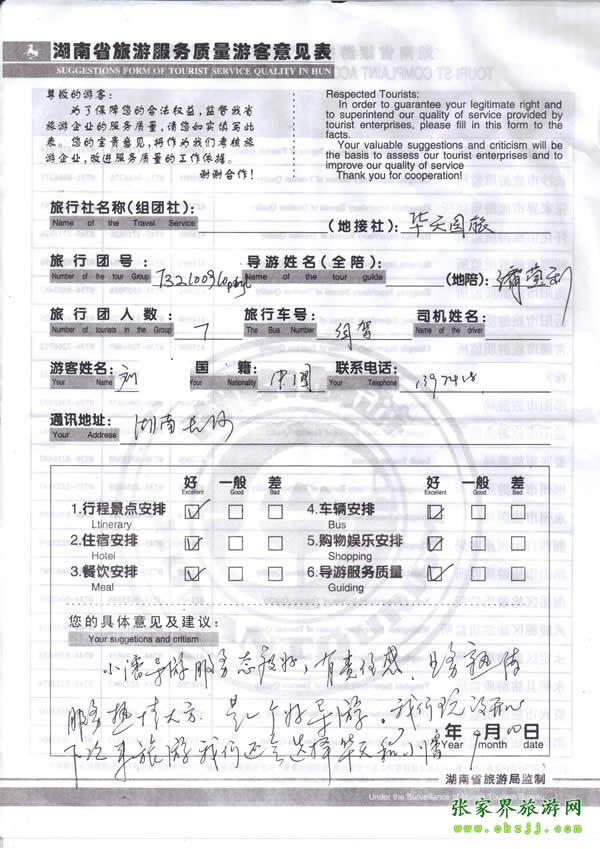 湖南省旅游服务质量游客意见表
SUGGESTIONS FORM OF TOURIST SERVICE QUALITY IN HUN
尊敬的游客:
为了保障您的合法权益,监督我省
旅游企业的服务质量,请您如实填写此
表。您的宝贵意见,将作为我们考核旅
游企业,改进服务质量的工作依据。
谢谢合作!
Respected Tourists:
In order to guarantee your legitimate right and
to superintend our quality of service provided by
tourist enterprises, please fill in this form to the
facts.
Your valuable suggestions and criticism will
be the basis to assess our tourist enterprises and to
improve our quality of service
Thank you for cooperation!
旅行社名称(组团社): (地接社): 华天国旅
Name of the Travel Service
旅行团号: 导游姓名(全陪): (地陪):
Number of the tour Group Name of the tour guide
旅行团人数: 7 旅行车号: 自驾 司机姓名:
Number of tourists in the Group The Bus Number Name of the driver
游客姓名: 刘 国籍: 中国 联系电话: 139741
Your Name Your Nationality Your Telephone
通讯地址: 湖南长沙
Your Address
好 一般 差 好 一般 差
Excellent Good Bad Excellent Good Bad
1.行程景点安排 4.车辆安排
Ltinerary Bus
2.住宿安排 5.购物娱乐安排
Hotel Shopping
3.餐饮安排 6.导游服务质量
Meal Guiding
您的具体意见及建议:
Your suggetions and critism
小潘导游服务态度好,有责任感,业务熟练
服务热情大方 是一个好导游。我们玩得开心
下次来旅游我们还会选择华天和小潘
年 9月 日
Year month date
湖南省旅游局监制
Under the Surveillance of Hunan Tourism Bureau
张家界旅游网
www.okzjj.com